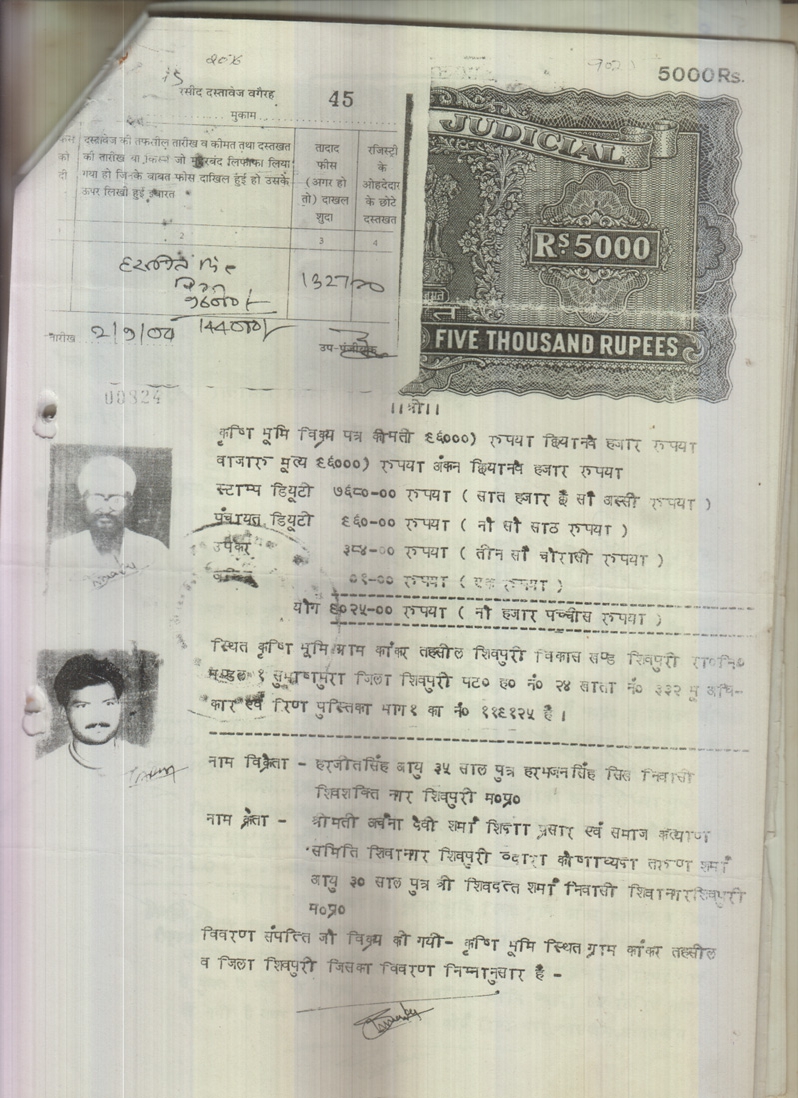 २०४
5000 Rs.
रसीद दस्तावेज वगैरह 45
मुकाम
दस्तावेज की तफतील तारीख व कीमत तथा दस्तखत
की तारीख या किस्म जो मुहरबंद लिफाफा लिया
गया हो जिनके बाबत फीस दाखिल हुई हो उसके
ऊपर लिखी हुई इबारत
तादाद
फीस
(अगर हो
तो) दाखल
शुदा
रजिस्ट्री
के
ओहदेदार
के छोटे
दस्तखत
1 2 3 4
तारीख 2/9/00 14400/-
उप-पंजीयक
JUDICIAL
Rs. 5000
FIVE THOUSAND RUPEES
00824
।।श्री।।
कृष्णि भूमि विक्रय पत्र कीमती ९६०००) रुपया छियानवे हजार रुपया
बाजारु मूल्य ९६०००) रुपया अंकन छियानवे हजार रुपया
स्टाम्प डियूटी ७६८०-०० रुपया ( सात हजार छै सौ अस्सी रुपया )
पंचायत डियूटी ९६०-०० रुपया ( नौ सौ साठ रुपया )
उपकर ३८४-०० रुपया ( तीन सौ चौरासी रुपया )
०१-०० रुपया ( एक रुपया )
योग ९०२५-०० रुपया ( नौ हजार पच्चीस रुपया )
स्थित कृष्णि भूमि ग्राम कांकर तहसील शिवपुरी विकास खण्ड शिवपुरी रा०नि०
मण्डल १ सुभाषपुरा जिला शिवपुरी पट० ह० नं० २४ खाता नं० ३३२ भू अधि-
कार एवं रिण पुस्तिका भाग१ का नं० ११९१२५ है ।
नाम विक्रेता - हरजीतसिंह आयु ३५ साल पुत्र हरभजनसिंह सिख निवासी
शिवशक्ति नगर शिवपुरी म०प्र०
नाम क्रेता - श्रीमती अर्चना देवी शर्मा शिक्षा प्रसार एवं समाज कल्याण
समिति शिवानगर शिवपुरी व्दारा कोषाध्यक्ष तरुण शर्मा
आयु ३० साल पुत्र श्री शिवदत्त शर्मा निवासी शिवानगरशिवपुरी
म०प्र०
विवरण संपत्ति जो विक्रय की गयी- कृष्णि भूमि स्थित ग्राम कांकर तहसील
व जिला शिवपुरी जिसका विवरण निम्नानुसार है -